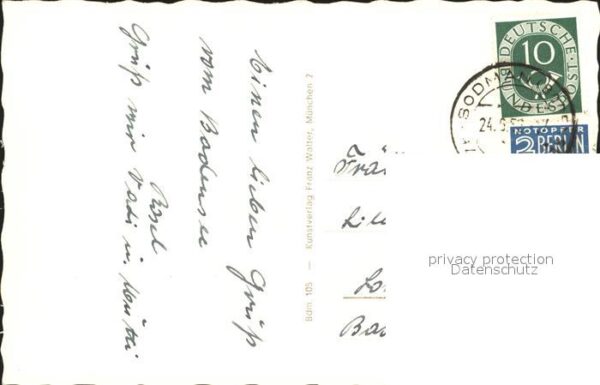 Einen lieben Gruß
vom Bodensee
Rosel
Gruß mir Vadi u. Mutti
Bdm. 105 — Kunstverlag Franz Walter, München 2
DEUTSCHE
10
BODMAN
24.
NOTOPFER
2 BERLIN
Frä
Lil
Ba
privacy protection
Datenschutz